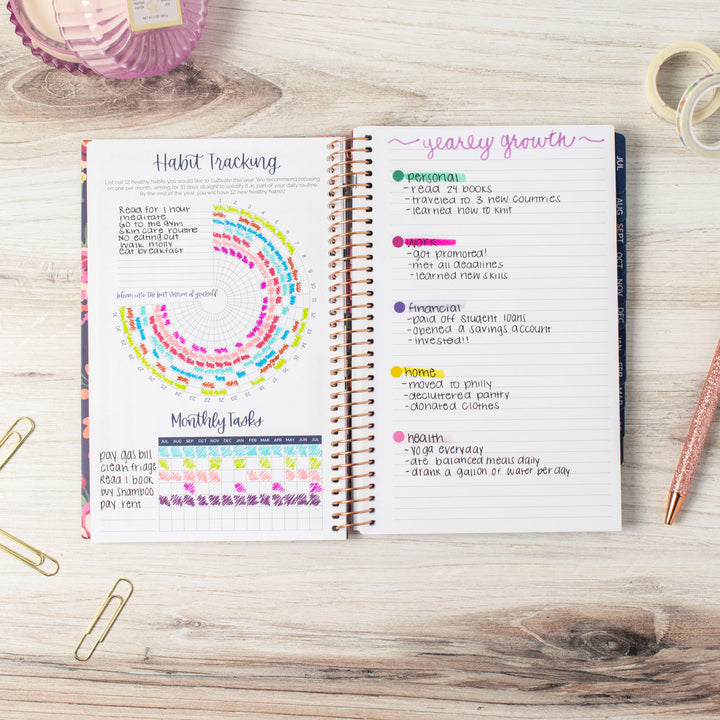 Habit Tracking
List out 12 healthy habits you would like to cultivate this year. We recommend focusing
on one per month, aiming for 31 days straight to solidify it as part of your daily routine.
By the end of the year, you will have 12 new healthy habits!
Read for 1 hour
meditate
Go to the gym
Skin care routine
No eating out
Walk molly
eat breakfast
bloom into the best version of yourself
Monthly Tasks
JUL AUG SEP OCT NOV DEC JAN FEB MAR APR MAY JUN JUL
pay gas bill
clean fridge
Read 1 book
buy shampoo
pay rent
yearly growth
personal
-read 24 books
-traveled to 3 new countries
-learned how to knit
work
-got promoted!
-met all deadlines
-learned new skills
financial
-paid off student loans
-opened a savings account
-invested!!
home
-moved to philly
-decluttered pantry
-donated clothes
health
-yoga everyday
-ate balanced meals daily
-drank a gallon of water per day
JUL
AUG
SEPT
OCT
NOV
DEC